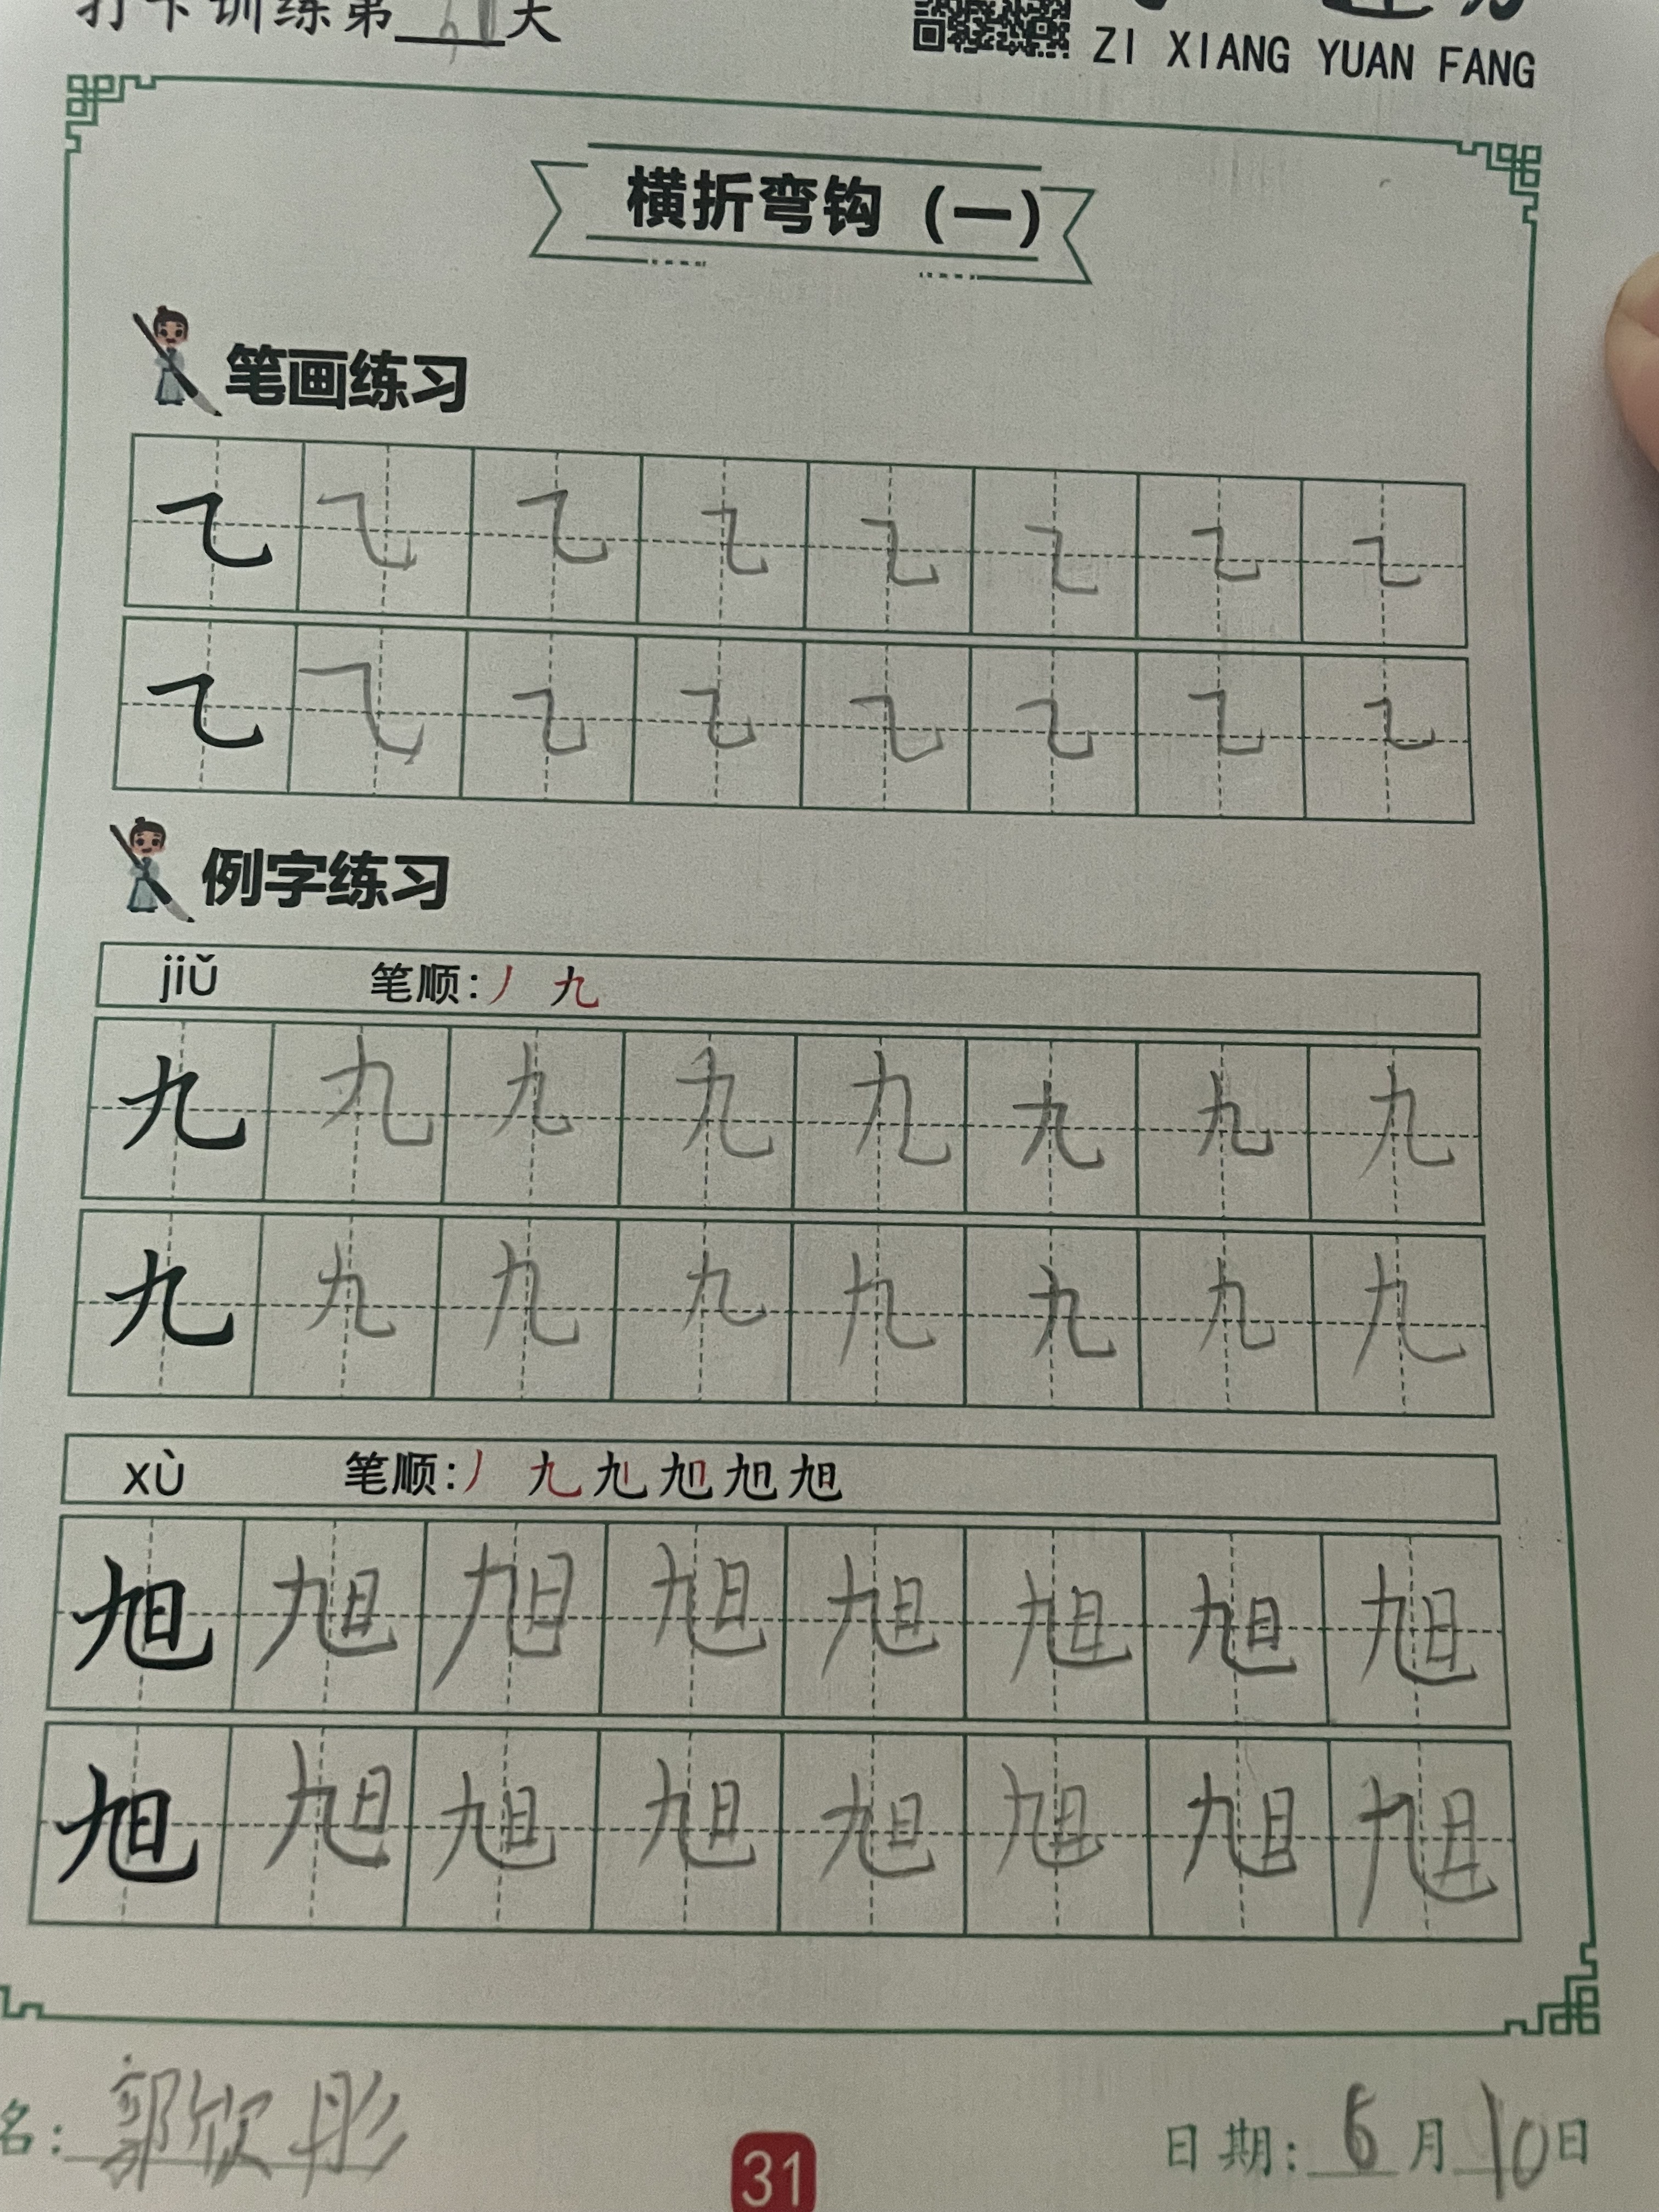 打卡训练第 天
ZI XIANG YUAN FANG
横折弯钩（一）
笔画练习
㇈ ㇈ ㇈ ㇈ ㇈ ㇈ ㇈ ㇈
㇈ ㇈ ㇈ ㇈ ㇈ ㇈ ㇈ ㇈
例字练习
jiǔ 笔顺:丿 九
九 九 九 九 九 九 九 九
九 九 九 九 九 九 九 九
xù 笔顺:丿 九 旭
旭 旭 旭 旭 旭 旭 旭 旭
旭 旭 旭 旭 旭 旭 旭 旭
名: 郭欣彤
31
日期: 6 月 10 日